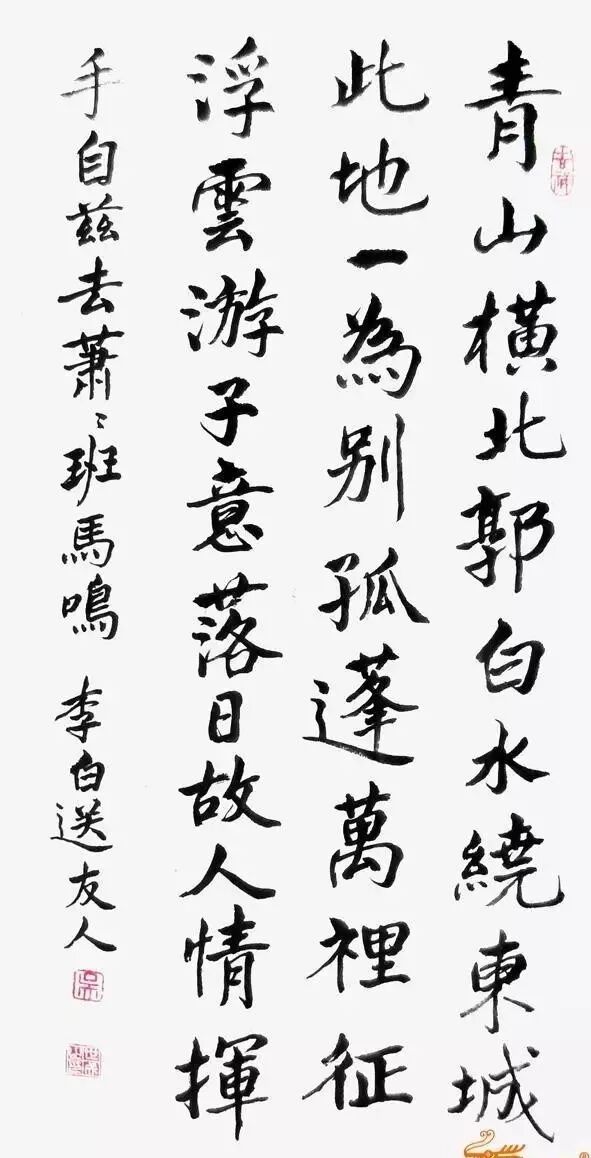 青山橫北郭白水繞東城
此地一為別孤蓬萬裡征
浮雲游子意落日故人情揮
手自茲去蕭〻班馬鳴 李白送友人